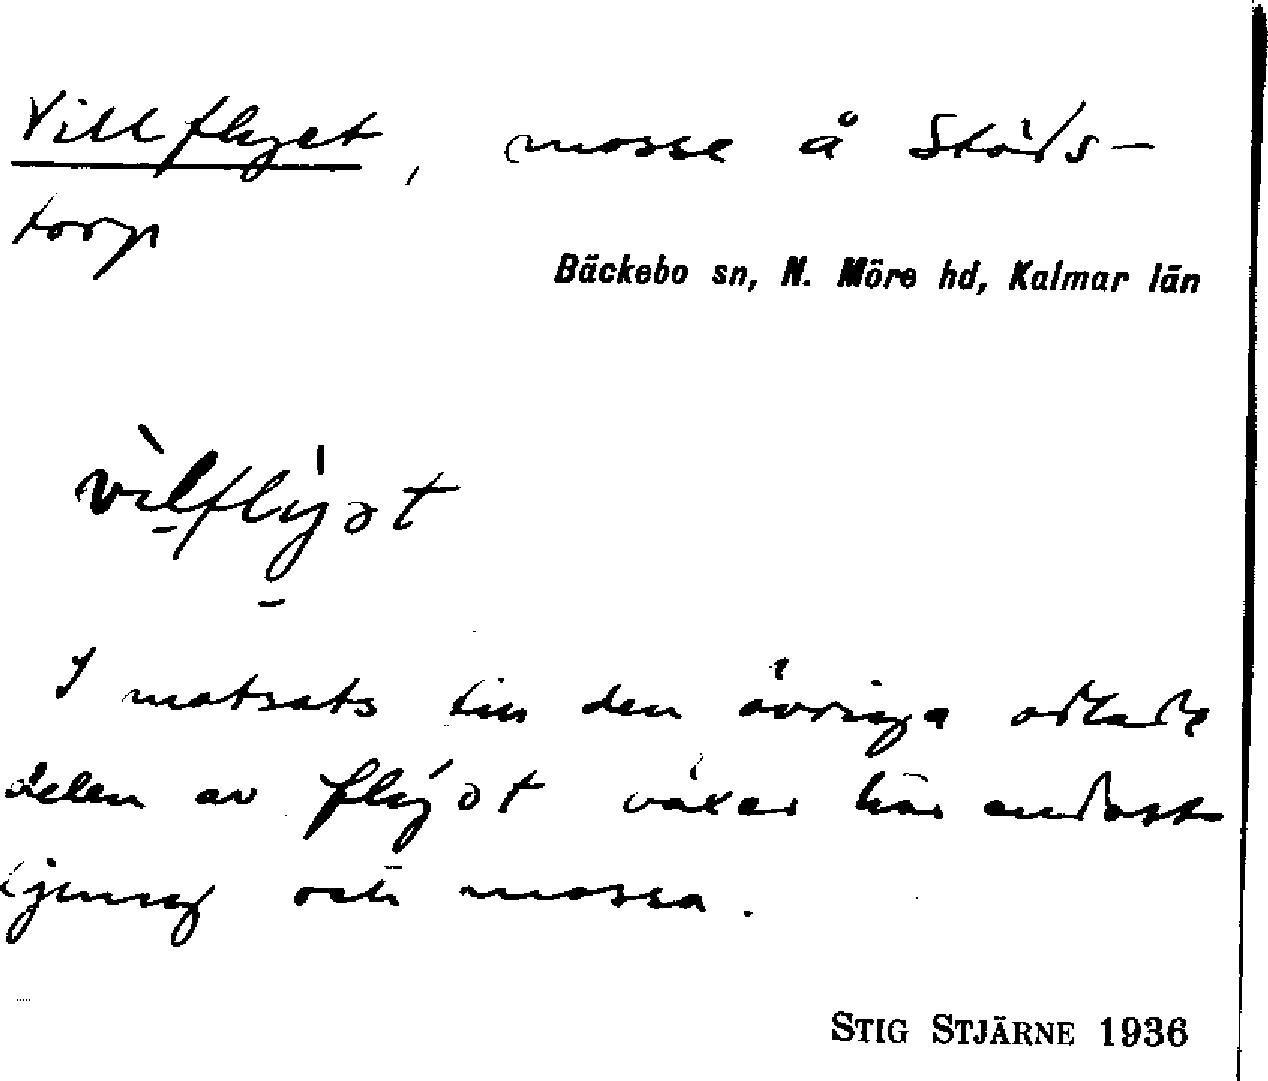 Villflyet, mosse å Stöds-
torp
Bäckebo sn, N. Möre hd, Kalmar län
vìlflýət
I motsats till den övriga odlade
delen av flýət växer här endast
ljung och mossa.
STIG STJÄRNE 1936